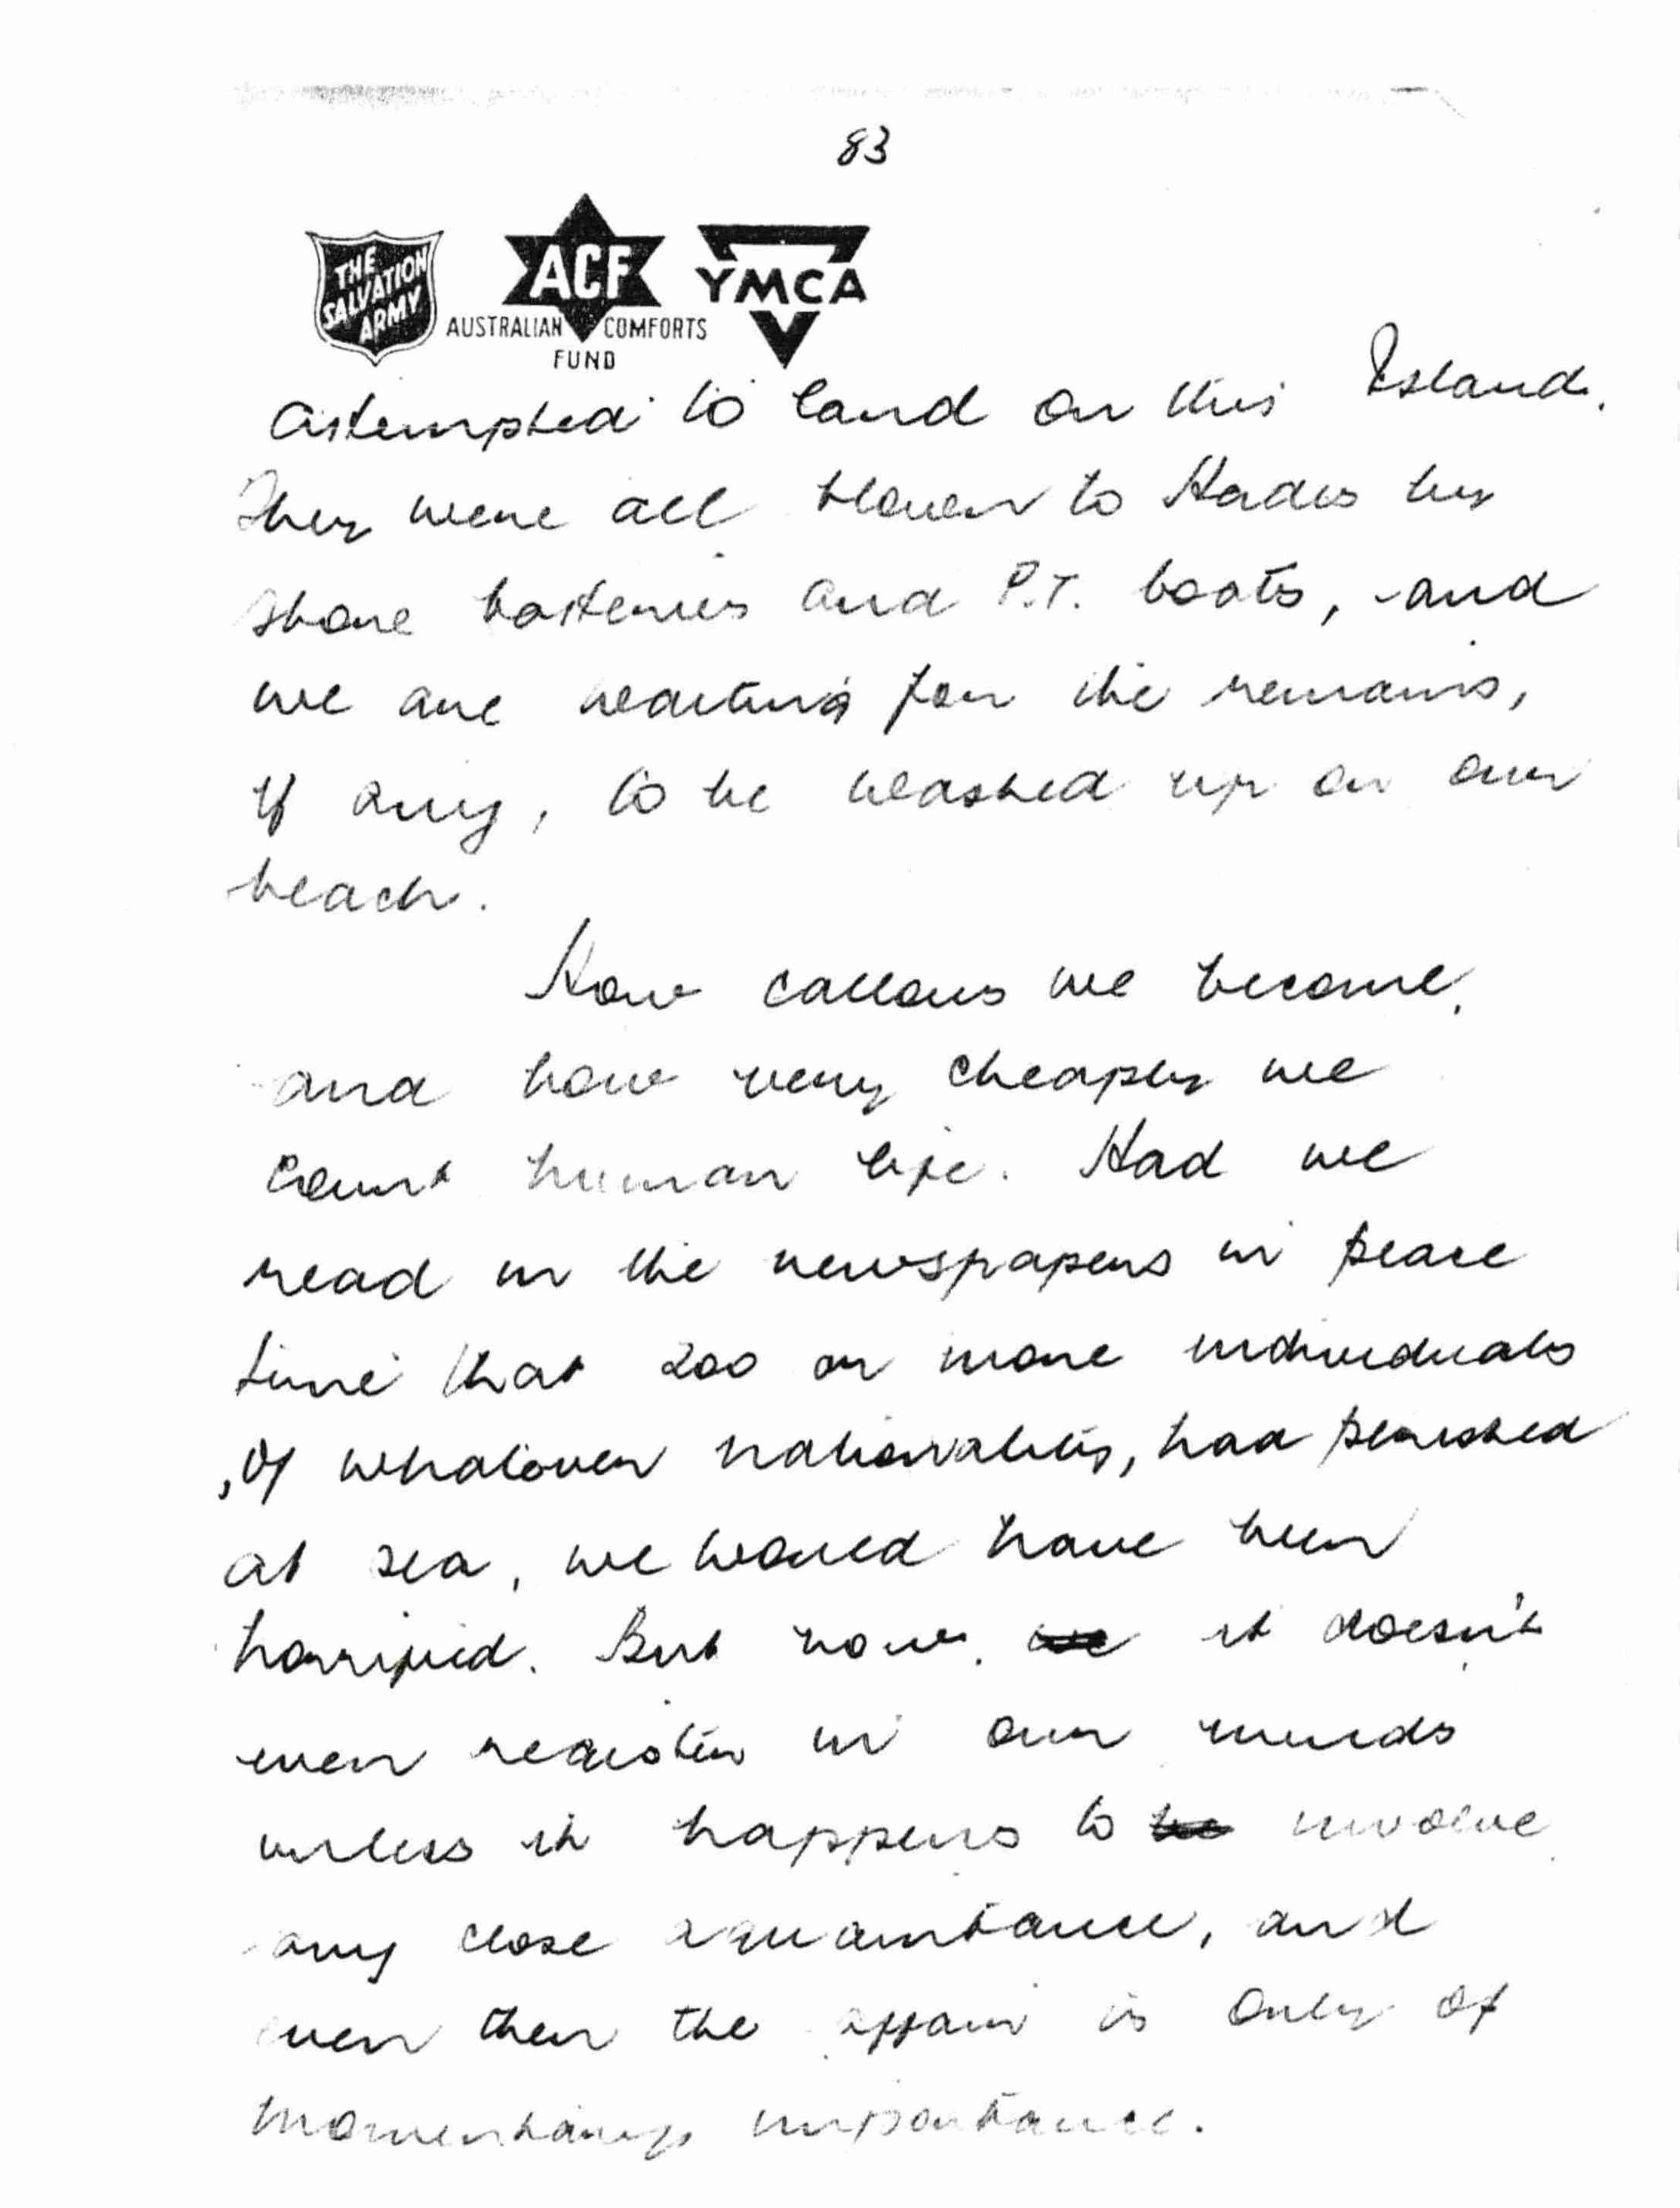 83
THE SALVATION ARMY
ACF
AUSTRALIAN COMFORTS FUND
YMCA
attempted to land on this Island.
They were all blown to Hades by
shore batteries and P.T. boats, and
we are waiting for the remains,
if any, to be washed up on our
beach.
How callous we become,
and how very cheaply we
count human life. Had we
read in the newspapers in peace
time that 200 or more individuals
, of whatever nationality, had perished
at sea, we would have been
horrified. But now, we it doesn't
even register in our minds
unless it happens to be involve
any close aquaintance, and
even then the affair is only of
momentary importance.